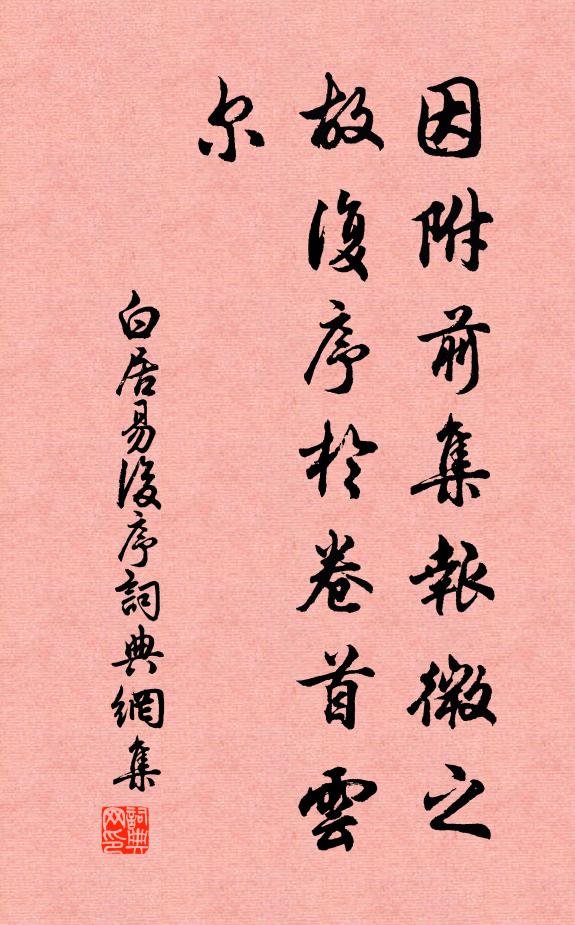 因附前集報微之
故復序於卷首雲
尔
白居易後序詞典網集
詞典网印